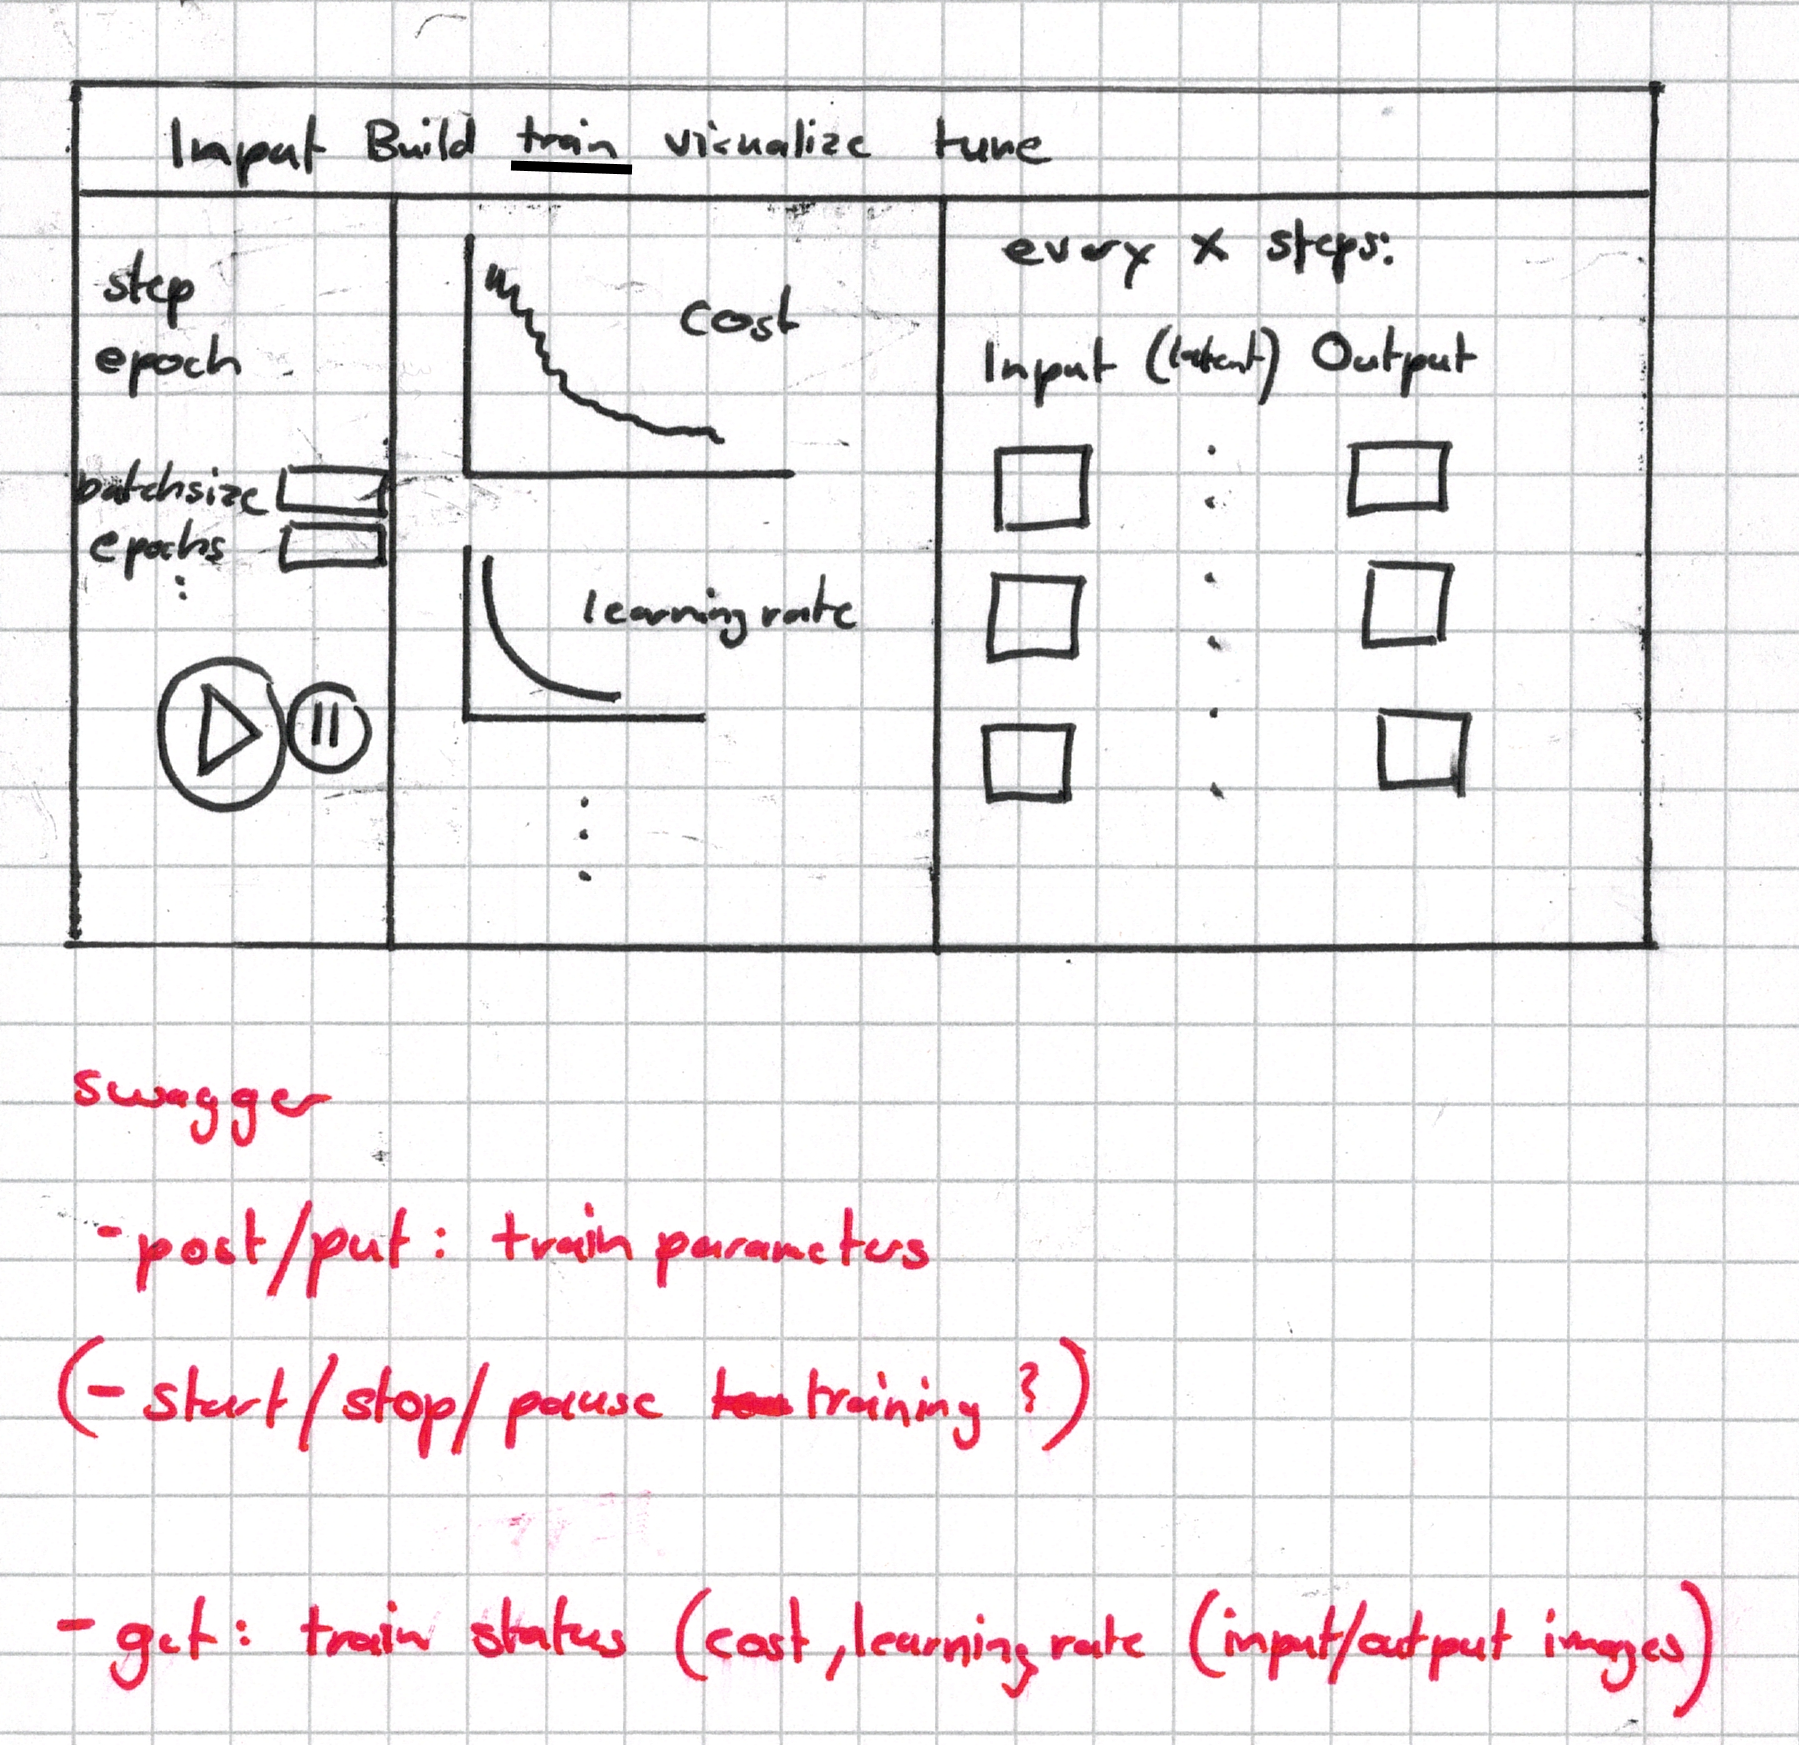 Input Build train visualize tune
step
epoch
batchsize
epochs
cost
learning rate
every x steps:
Input (latent) Output
swagger
- post/put: train parameters
(- start/stop/pause training ?)
- get: train status (cost, learning rate (input/output images)